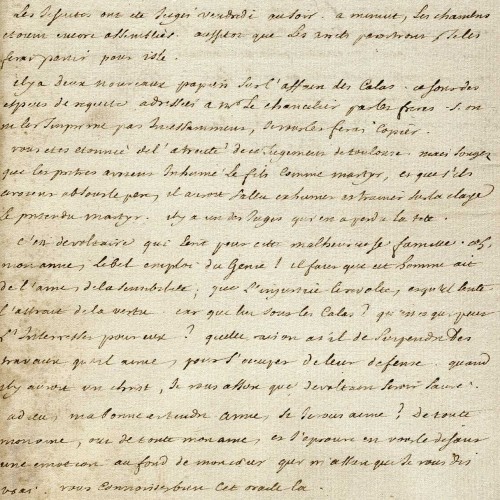 Les Jesuites ont ete Jugés vendredi au soir. a minuit, Les chambres
etoient encore assemblées. aussitot que Les arrets paroitront Je les
ferai partir pour isle.
il y a deux nouveaux papiers sur l'affaire des Calas. ce sont des
especes de requete adressées a mr Le chancelier par les freres. si on
ne les Imprime pas Incessamment, Je vous les ferai copier.
vous etes etonnée de l'atrocité de ce Jugement de toulouse. mais songez
que les pretres avoient Inhumé le fils comme martyr, et que s'ils
avoient absous le pere, il auroit fallu exhumer et trainer sur la claye
le pretendu martyr. il y a un des Juges qui en a perdu la tete.
c'est de voltaire qui ecrit pour cette malheureuse famille. oh
mon amie, le bel emploi du Genie! il faut que cet homme ait
de l'ame, de la sensibilité; que L'injustice le revolte, et qu'il sente
l'attrait de la vertu. car que lui sont les Calas? qui est-ce qui peut
L'Interesser pour eux? quelle raison a-t-il de suspendre Des
travaux qu'il aime, pour s'occuper de leur defense. quand
il y auroit un christ, Je vous assure que de voltaire seroit sauvé.
adieu, ma bonne et tendre amie. si Je vous aime? De toute
mon ame, oui de toute mon ame, et J'eprouve en vous le disant
une emotion au fond de mon coeur qui m'assure que Je vous dis
vrai. vous connoissez bien cet oracle la.